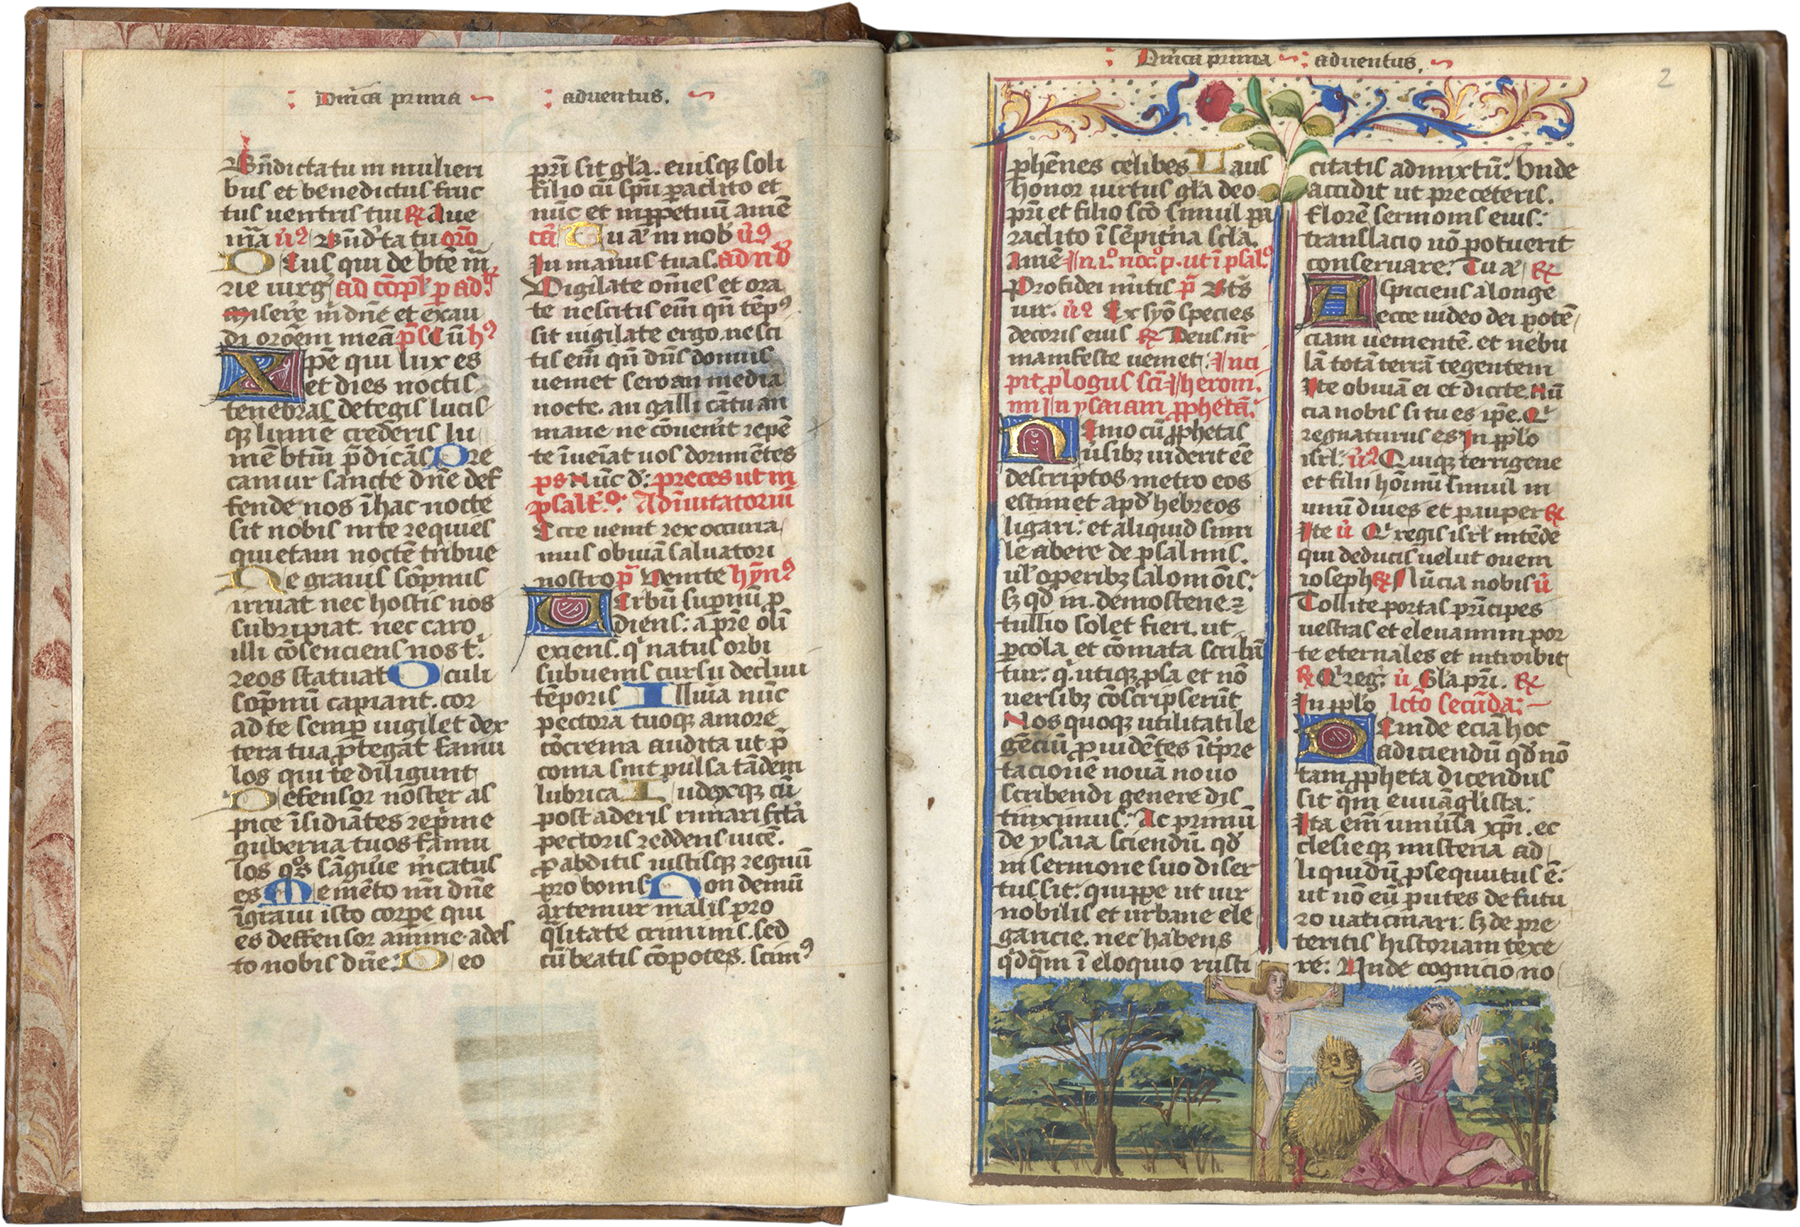 Dn̄ica prima
aduentus.
Bn̄dicta tu in mulieri
bus et benedictus fruc
tus uentris tui ℟ Aue
m̄a v̄ꝰ Bn̄dc̄ta tu or̄o
Deus qui de bt̄e m̄
rie uirḡ ad cōpl̄ p ad
Misere m̄ dn̄e et exau
di oroēm meā p̄s Cū hꝰ
Xpe qui lux es
et dies noctis
tenebras detegis lucis
qꝫ lumē crederis lu
mē btm̄ p̄dicās Pre
camur sancte dn̄e def
fende nos ī hac nocte
sit nobis in te requies
quietam noctē tribue
Ne grauis sōpnus
irruat nec hostis nos
subripiat. nec caro
illi cōsenciens nos t̄.
reos statuat Oculi
sōpnū capiant. cor
ad te semꝑ uigilet dex
tera tua ꝓtegat famu
los qui te diligunt
Defensor noster as
pice īsidiātes rep̄me
guberna tuos famu
los q̄s sāguīe m̄catus
es Memēto nr̄i dn̄e
īgraui isto corpe qui
es deffensor anīme. ades
to nobis dn̄e. Deo
pr̄i sit gl̄a. eiusqꝫ soli
filio cū sp̄u paclito et
nūc et inꝑpetuū amē
Tu āē in nob̄ v̄ꝰ
In manus tuas. ad nc̄
Vigilate om̄es et ora
te nescitis eīm qn̄ tēpꝰ
sit uigilate ergo. nesci
tis eīm qn̄ dn̄s domus
ueniet sero an media
nocte. an galli cātu an
mane ne cōuenit repē
te īueiat uos dormiētes
ps Nūc d. preces ut in
psalt̄.º. Adiuitatoriū
Ecce uenit rex occurra
mus obuiā saluatori
nostro p̄ Venite hȳnꝰ
Verbū suꝑnū p
diens. a pr̄e oli
exiens. q̄ natus orbi
subuenis cursu decliui
tēporis Illuīa nūc
pectora tuoqꝫ amore
cōcrema audita ut p̄
conia sint pulsa tādem
lubrica Iudexqꝫ cū
post aderis rimari fc̄ta
pectoris reddens uicē.
ꝓ abditis iustisqꝫ regnū
pro bonis Non demū
artemur malis pro
qlitate criminis. sed
cū beatis cōpotes. simꝰ
Dn̄ica prima
aduentus.
2
phēnes celibes Laus
honor uirtus gl̄a deo
pr̄i et filio sc̄o simul pa
raclito ī sēpitn̄a scl̄a.
Amē In .iº. nocº. p. ut ī psalº
Pro fidei mitis p̄ Bt̄s
uir. v̄ꝰ Ex syō species
decoris eius ℟ Deus nr̄
manifeste ueniet. Inci
pit plogus sc̄i Iheroni.
mi In ysaiam ꝓphetā.
Nemo cū ꝓphetas
ūsibꝫ uiderit ēē
descriptos metro eos
estimet apd̄ hebreos
ligari. et aliquid simi
le abere de psalmis.
ul̄ operibꝫ salomōis.
sꝫ qd̄ in. demostene. ꝛ
tullio solet fieri. ut
ꝑcola et comata scribā
tur. q̄. utiqꝫ ꝓsa et nō
uersibꝫ cōscripserūt
Nos quoqꝫ utilitatile
gēciū ꝓuidētes īt̄pre
tacionē nouā nouo
scribendi genere dis
tinximus. Ac primū
de ysaia sciendū. qd̄
in sermone suo diser
tus sit. quippe ut uir
nobilis et urbane ele
gancie. nec habens
qd̄qm̄ ī eloquio rusti
citatis admixtū. Unde
accidit ut pre ceteris.
florē sermonis eius.
translacio nō potuerit
conseruare. Tu āē ℟
Aspiciens a longe
ecce uideo dei potē
ciam uenientē. et nebu
lā totā terrā tegentem
Ite obuiā ei et dicite. Nū
cia nobis si tu es ipe. Qͥ
regnaturus es In ppl̄o
isrl̄. v̄ꝰ Quiqꝫ terrigene
et filii hōinū simul in
unū diues et pauper ℟
Ite v̄ Qͥ regis isrl̄ intēde
qui deducis uelut ouem
ioseph ℟ Nūcia nobis v̄
Tollite portas prīncipes
uestras et eleuamini por
te eternales et introibit
℟ Qͥ reg. v̄ Gl̄a pr̄i. ℟
In ppl̄o lc̄to secūda.
Deinde eciā hoc
adiciendū qd̄ nō
tam ꝓpheta dicendus
sit q̄m euuāgl̄ista.
Ita enī uniūsa xp̄i. ec
clesieqꝫ misteria ad
liquidū ꝓsequutus ē.
ut non eū putes de futu
ro uaticinari. sꝫ de pre
teritis historiam texe
re. Unde cogniciō no